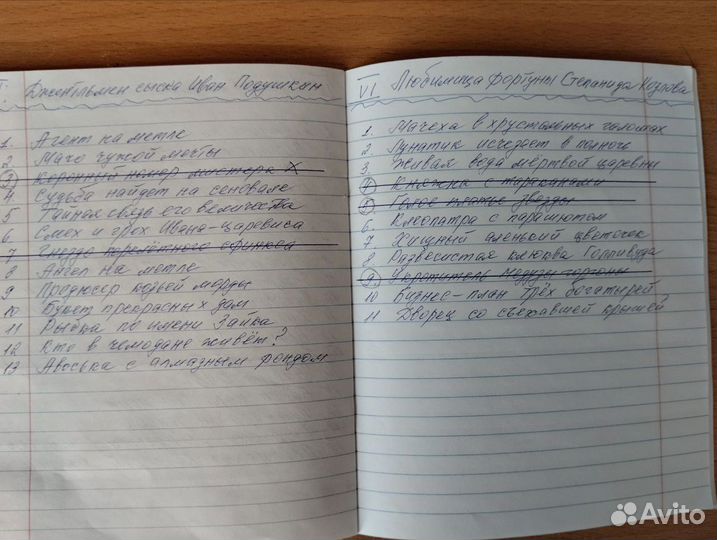 Джентльмен сыска Иван Подушкин
1. Агент на метле
2 Маго чужой мечты
3 Коронный номер мистера Х
4 Судьба найдет на сеновале
5 Тайная связь его величества
6. Смех и грех Ивана-царевича
7 Гнездо перелётного сфинкса
8 Ангел на метле
9 Продюсер козьей морды
10 Букет прекрасных дам
11 Рыбка по имени Зайка
12 Кто в чемодане живёт?
13 Авоська с алмазным фондом
VI Любимица фортуны Степанида Козлова
1. Мачеха в хрустальных галошах
2. Лунатик исчезает в полночь
3. Живая вода мёртвой царевны
4 Княжна с тараканами
5 Голое платье звезды
6. Клеопатра с парашютом
7 Хищный аленький цветочек
8. Развесистая клюква Голливуда
9. Укротитель медузы горгоны
10 Бизнес-план трёх богатырей
11 Дворец со съехавшей крышей
Avito